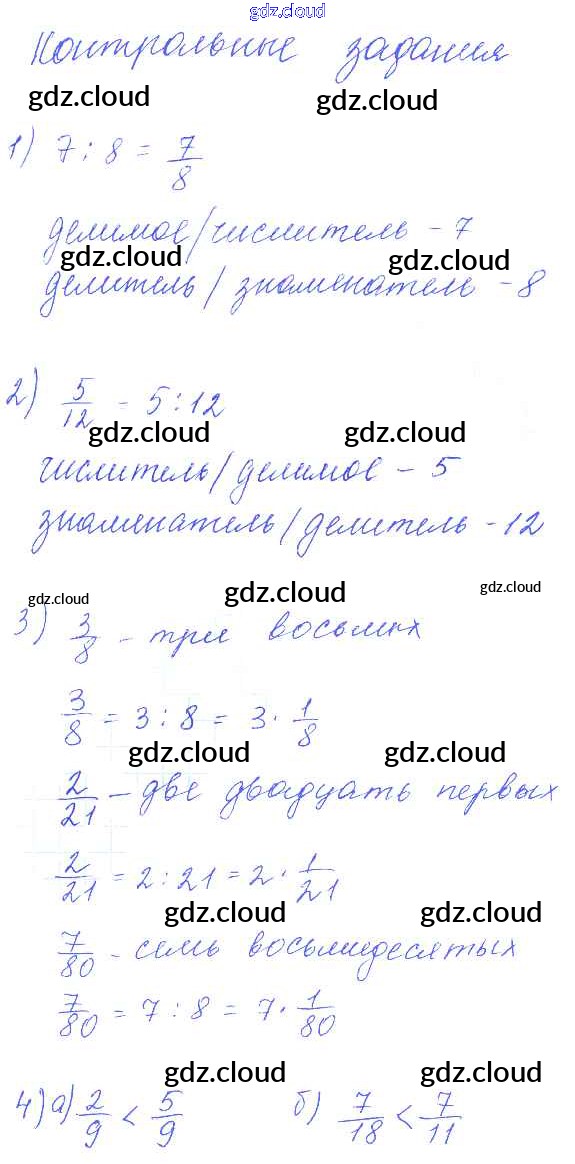 gdz.cloud
Контрольные задания
gdz.cloud gdz.cloud
1) 7 : 8 = 7/8
делимое/числитель - 7
gdz.cloud gdz.cloud
делитель/знаменатель - 8
2) 5/12 = 5 : 12
gdz.cloud gdz.cloud
числитель/делимое - 5
знаменатель/делитель - 12
gdz.cloud gdz.cloud gdz.cloud
3) 3/8 - три восьмых
3/8 = 3 : 8 = 3 · 1/8
gdz.cloud gdz.cloud
2/21 - две двадцать первых
2/21 = 2 : 21 = 2 · 1/21
gdz.cloud gdz.cloud
7/80 - семь восьмидесятых
7/80 = 7 : 8 = 7 · 1/80
gdz.cloud gdz.cloud
4) а) 2/9 < 5/9 б) 7/18 < 7/11